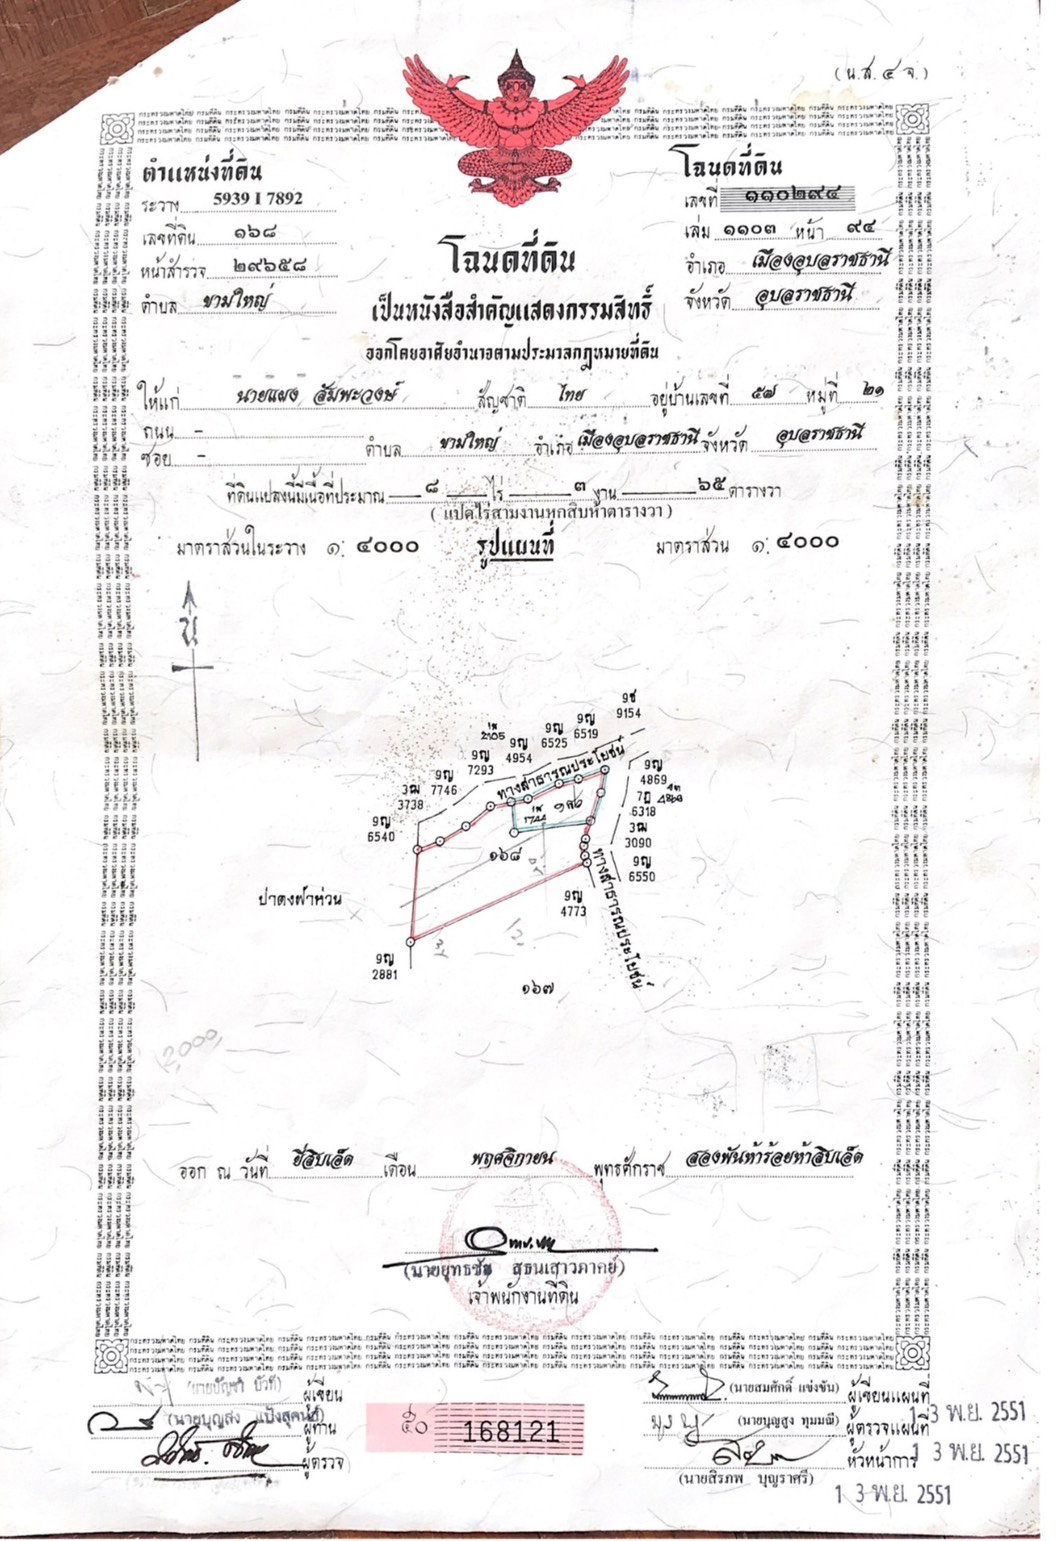 (น.ส. ๔ จ.)
ตำแหน่งที่ดิน
ระวาง 5939 I 7892
เลขที่ดิน ๑๖๘
หน้าสำรวจ ๒๙๖๕๘
ตำบล ขามใหญ่
โฉนดที่ดิน
เลขที่ ๑๑๐๒๙๔
เล่ม ๑๑๐๓ หน้า ๙๔
อำเภอ เมืองอุบลราชธานี
จังหวัด อุบลราชธานี
โฉนดที่ดิน
เป็นหนังสือสำคัญแสดงกรรมสิทธิ์
ออกโดยอาศัยอำนาจตามประมวลกฎหมายที่ดิน
ให้แก่ นายแผง สัมพะวงษ์ สัญชาติ ไทย อยู่บ้านเลขที่ ๕๗ หมู่ที่ ๒๑
ถนน -
ซอย - ตำบล ขามใหญ่ อำเภอ เมืองอุบลราชธานี จังหวัด อุบลราชธานี
ที่ดินแปลงนี้มีเนื้อที่ประมาณ ๘ ไร่ ๓ งาน ๖๕ ตารางวา
(แปดไร่สามงานหกสิบห้าตารางวา)
มาตราส่วนในระวาง ๑: ๔๐๐๐ รูปแผนที่ มาตราส่วน ๑: ๔๐๐๐
น
9ช
9154
9ญ
6519
9ญ
6525
9ญ
4954
2105
9ญ
7293
9ญ
7746
3ฒ
3738
9ญ
6540
ทางสาธารณประโยชน์
9ญ
4869
7ฎ
6318
3ฒ
3090
9ญ
6550
๑๖๘
ป่าดงฟ้าห่วน
9ญ
4773
ทางสาธารณประโยชน์
9ญ
2881
๑๖๗
2,000
ออก ณ วันที่ ยี่สิบเอ็ด เดือน พฤศจิกายน พุทธศักราช สองพันห้าร้อยห้าสิบเอ็ด
(นายยุทธชัย สุธนเสาวภาคย์)
เจ้าพนักงานที่ดิน
ผู้เขียน
(นายบุญส่ง แป้งสุคนธ์) ผู้ทาน
ผู้ตรวจ
๕๐ 168121
(นายสมศักดิ์ แข่งขัน) ผู้เขียนแผนที่
(นายบุญสูง ทุมมณี) ผู้ตรวจแผนที่ 1 3 พ.ย. 2551
หัวหน้าการ 1 3 พ.ย. 2551
(นายสิรภพ บุญราศรี)
1 3 พ.ย. 2551